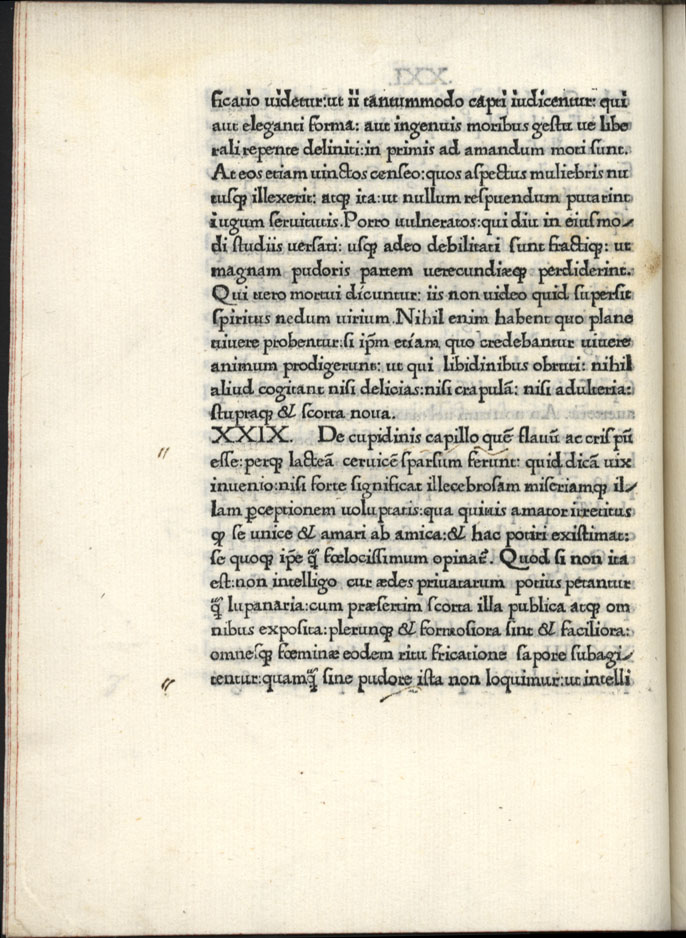 ficatio uidetur:ut ii tantummodo capti iudicentur: qui
aut eleganti forma: aut ingenuis moribus gestu ue libe
rali repente deliniti:in primis ad amandum moti sunt.
At eos etiam uinctos censeo:quos aspectus muliebris nu
tusq; illexerit: atq; ita:ut nullum respuendum putarint
iugum seruitutis.Porro uulneratos:qui diu in eiusmo⸗
di studiis uersati: usq; adeo debilitati sunt fractiq;: ut
magnam pudoris partem uerecundiæq; perdiderint.
Qui uero mortui dicuntur: iis non uideo quid supersit
spiritus nedum uirium.Nihil enim habent quo plane
uiuere probentur:si ip̃m etiam quo credebantur uiuere
animum prodigerunt: ut qui libidinibus obruti: nihil
aliud cogitant nisi delicias:nisi crapulã: nisi adulteria:
stupraq; & scorta noua.
XXIX. De cupidinis capillo quẽ flauũ ac crispũ
esse:perq; lacteã ceruicẽ sparsum ferunt: quid dicã uix
inuenio:nisi forte significat illecebrosam miseriamq; il⸗
lam ꝑceptionem uoluptatis:qua quiuis amator irretitus
ꝙ se unice & amari ab amica:& hac potiri existimat:
se quoq; ip̃e q̃ȝ fœlocissimum opinat̃. Quod si non ita
est:non intelligo cur ædes priuatarum potius petantur
q̃ȝ lupanaria:cum præsertim scorta illa publica atq; om
nibus exposita:plerunq; & formosiora sint & faciliora:
omnesq; fœminæ eodem ritu fricatione sapore subagi⸗
tentur:quamq̃ȝ sine pudore ista non loquimur:ut intelli